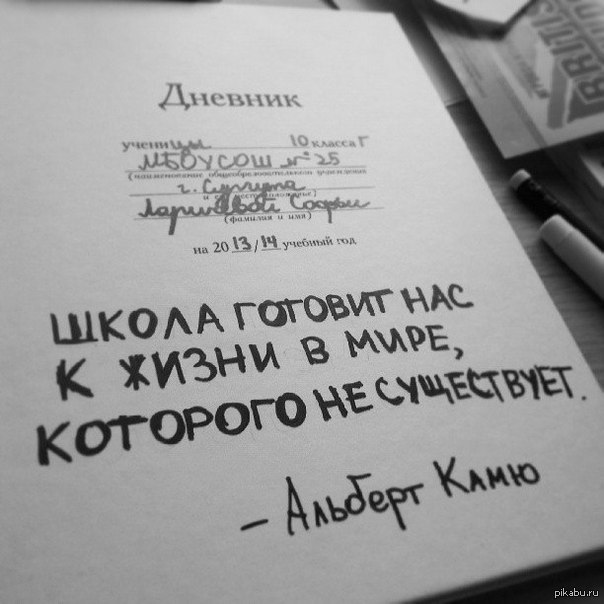 Дневник
ученицы 10 класса Г
МБОУСОШ №25
(наименование общеобразовательного учреждения
г. Сургута
Софьи
(фамилия и имя)
на 2013/14 учебный год
ШКОЛА ГОТОВИТ НАС
К ЖИЗНИ В МИРЕ,
КОТОРОГО НЕ СУЩЕСТВУЕТ.
– Альберт Камю
BRITIS
pikabu.ru